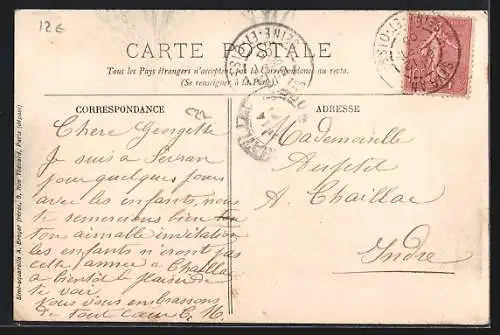 12 €
CARTE POSTALE
Tous les Pays étrangers n'acceptent pas la Correspondance au recto.
(Se renseigner à la Poste)
CORRESPONDANCE
Chere Georgette
Je suis a
pour quelques jours
avec les enfants, nous
te remercions bien
ton aimable invitation
les enfants n'iront pas
cette annee a Chaillac
a bientôt le plaisir de
te voir
Nous vous embrassons
de tout cœur
ADRESSE
Mademoiselle
A. Chaillac
Indre
Simi-aquarelle A. Breger frères, 9, Rue Thénard, Paris